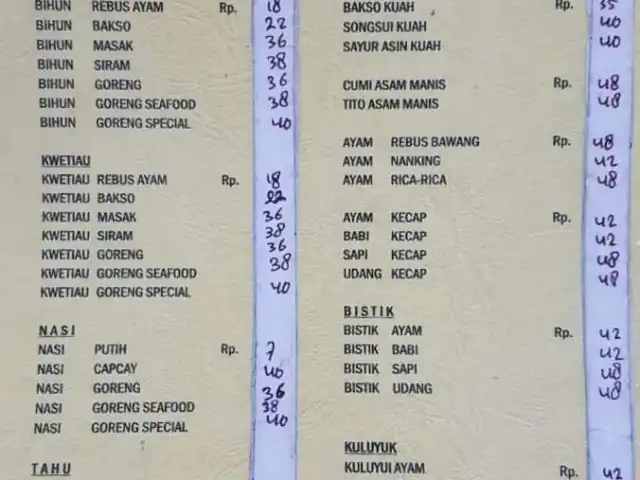 BIHUN REBUS AYAM Rp. 18
BIHUN BAKSO 22
BIHUN MASAK 36
BIHUN SIRAM 38
BIHUN GORENG 36
BIHUN GORENG SEAFOOD 38
BIHUN GORENG SPECIAL 40
KWETIAU
KWETIAU REBUS AYAM Rp. 18
KWETIAU BAKSO 22
KWETIAU MASAK 36
KWETIAU SIRAM 38
KWETIAU GORENG 36
KWETIAU GORENG SEAFOOD 38
KWETIAU GORENG SPECIAL 40
NASI
NASI PUTIH Rp. 7
NASI CAPCAY 40
NASI GORENG 36
NASI GORENG SEAFOOD 38
NASI GORENG SPECIAL 40
TAHU
BAKSO KUAH Rp. 35
SONGSUI KUAH 40
SAYUR ASIN KUAH 40
CUMI ASAM MANIS Rp. 48
TITO ASAM MANIS 48
AYAM REBUS BAWANG Rp. 48
AYAM NANKING 42
AYAM RICA-RICA 48
AYAM KECAP Rp. 42
BABI KECAP 42
SAPI KECAP 48
UDANG KECAP 48
BISTIK
BISTIK AYAM Rp. 42
BISTIK BABI 42
BISTIK SAPI 48
BISTIK UDANG 48
KULUYUK
KULUYUI AYAM Rp. 42